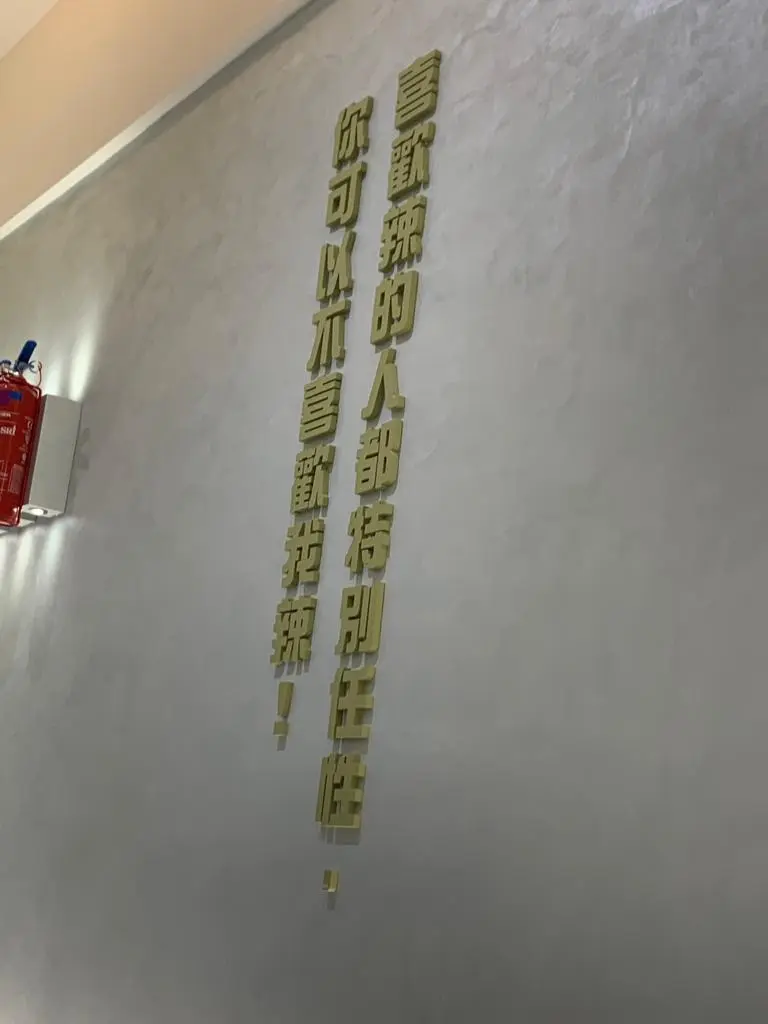 喜歡辣的人都特別任性，
你可以不喜歡我辣！